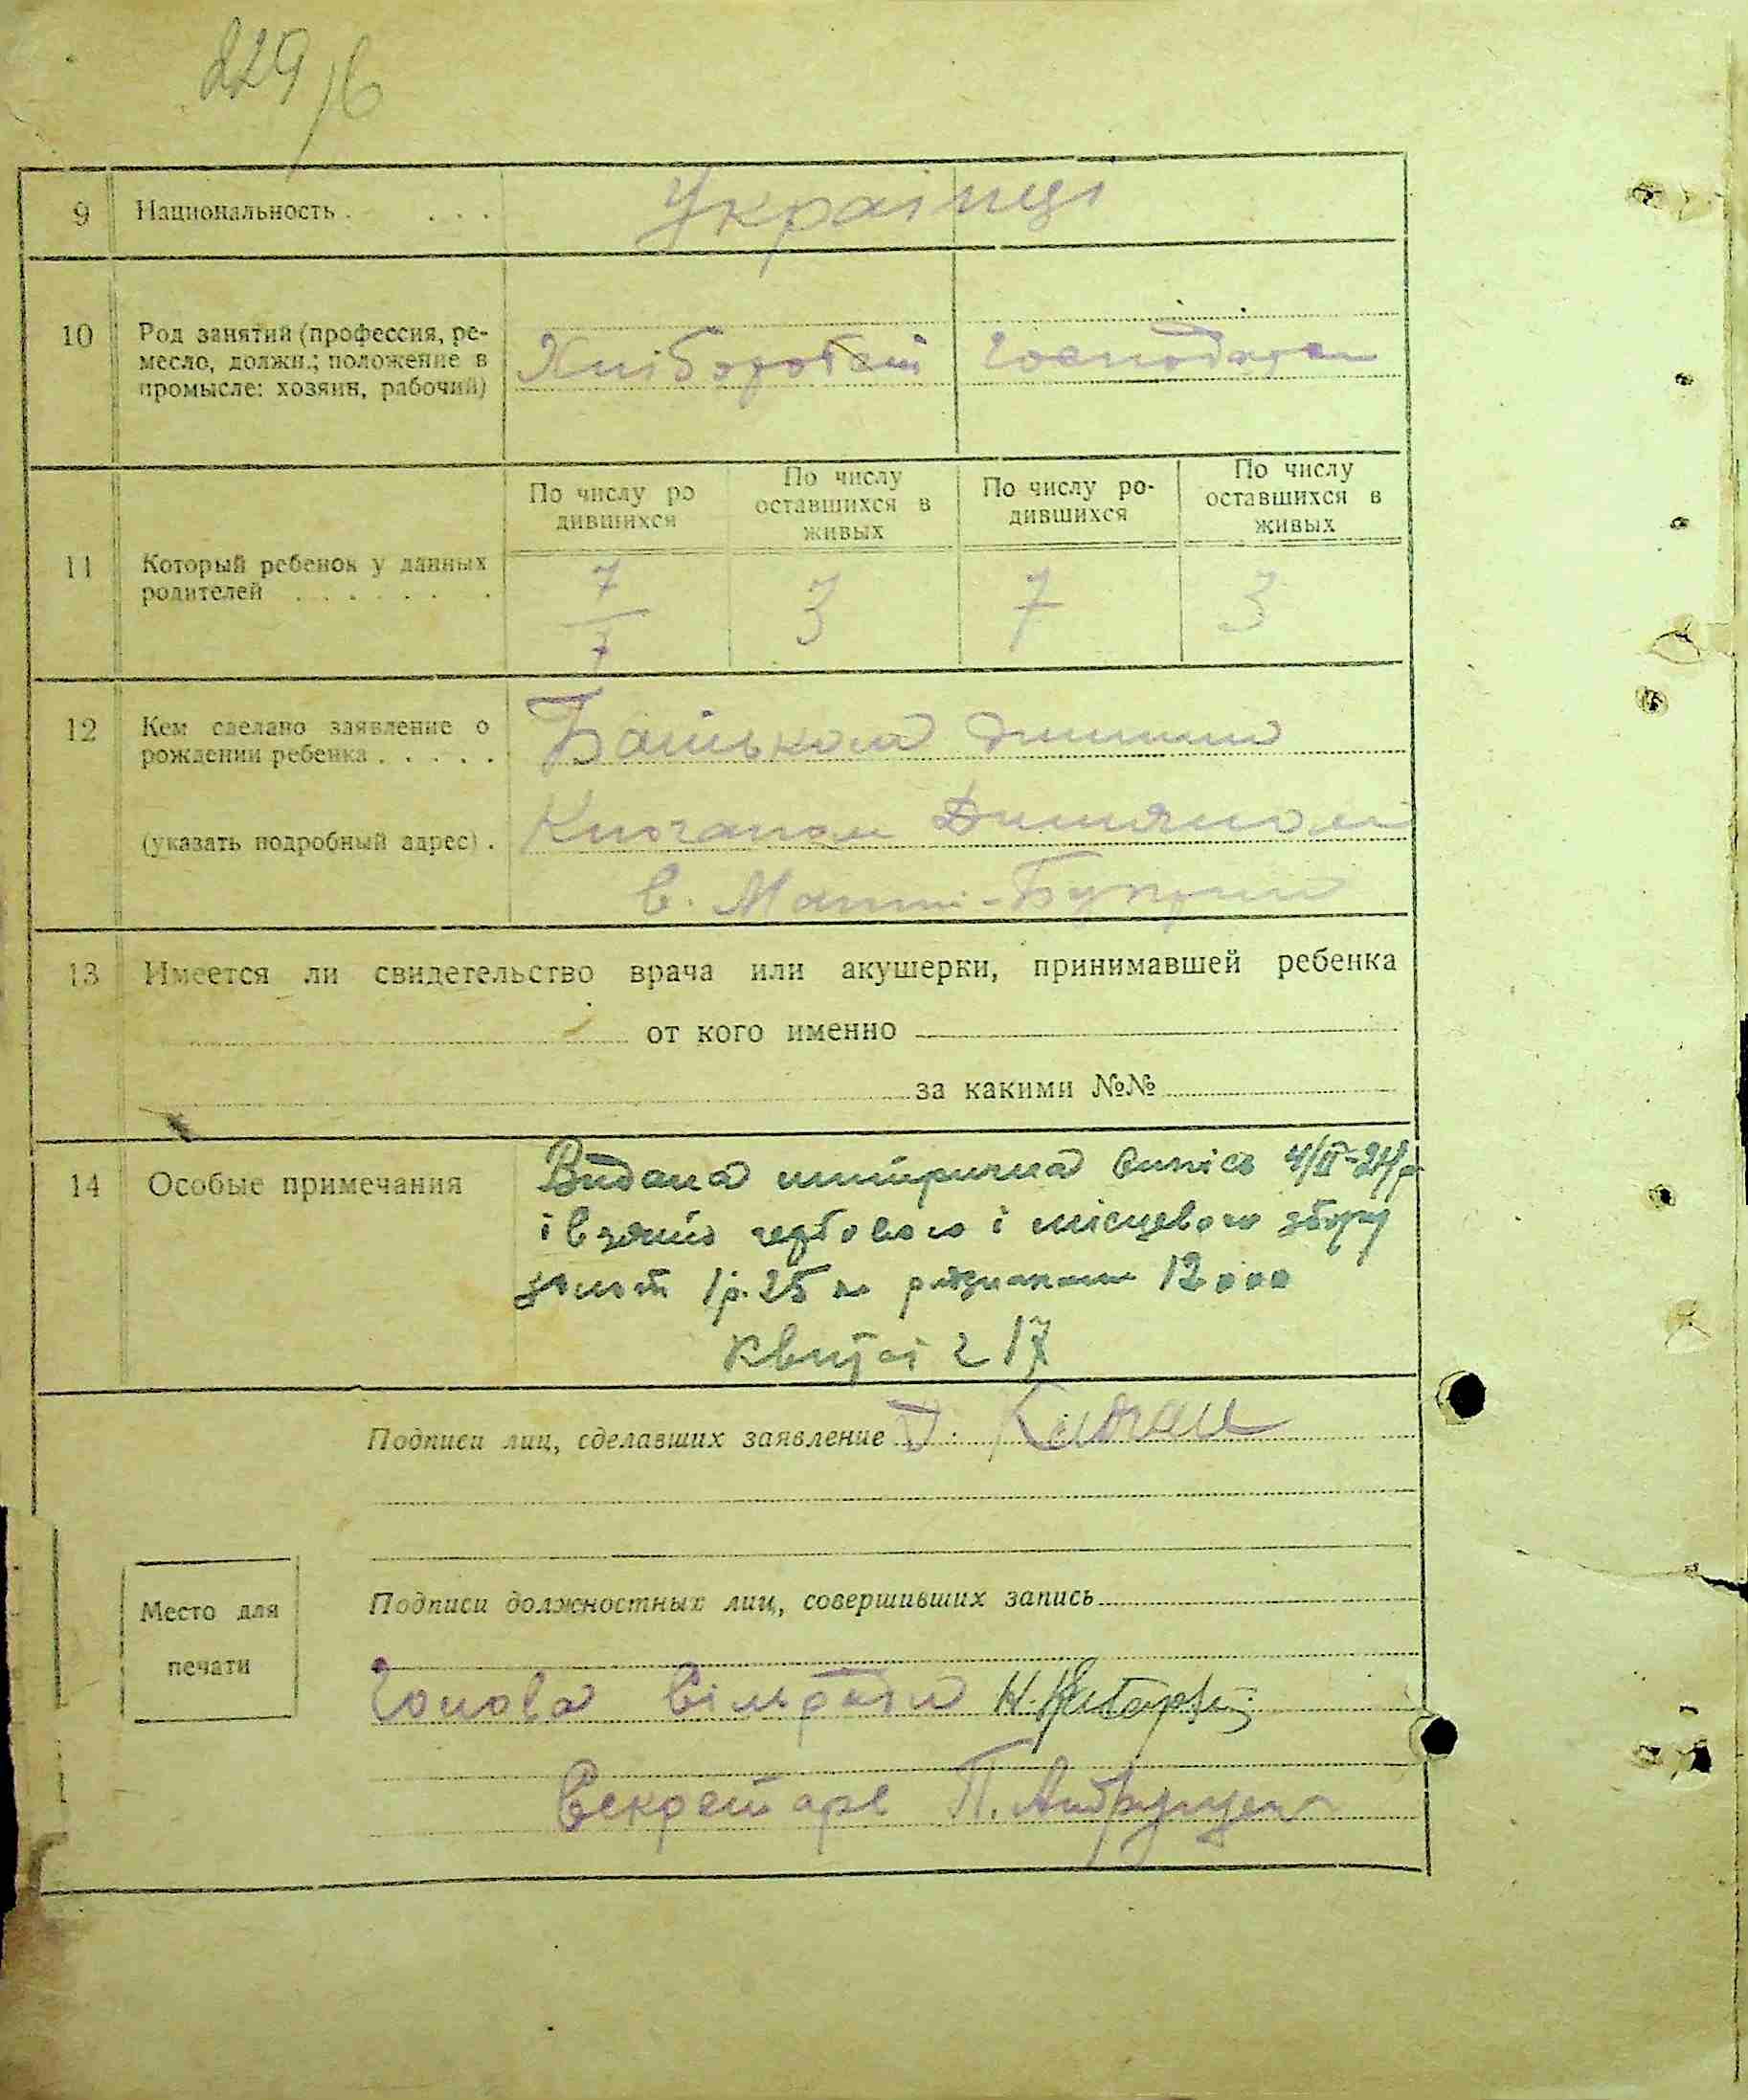 229/6
9 Национальность . . . . Українці
10 Род занятий (профессия, ре-
месло, должн.; положение в
промысле: хозяин, рабочий)
Хлібороб
11 Который ребенок у данных
родителей . . . . . . .
По числу ро
дившихся
По числу
оставшихся в
живых
По числу ро-
дившихся
По числу
оставшихся в
живых
7 3 7 3
7
12 Кем сделано заявление о
рождении ребенка . . . . .
Батьком дитини
(указать подробный адрес) .
в. Мали
13 Имеется ли свидетельство врача или акушерки, принимавшей ребенка
от кого именно
за какими №№
14 Особые примечания
Видана метрична випись
і взято гербового і місцевого збору
1р. 25 к 12000
17
Подписи лиц, сделавших заявление
Место для
печати
Подписи должностных лиц, совершивших запись
Голова Сільради
Секретарь П.